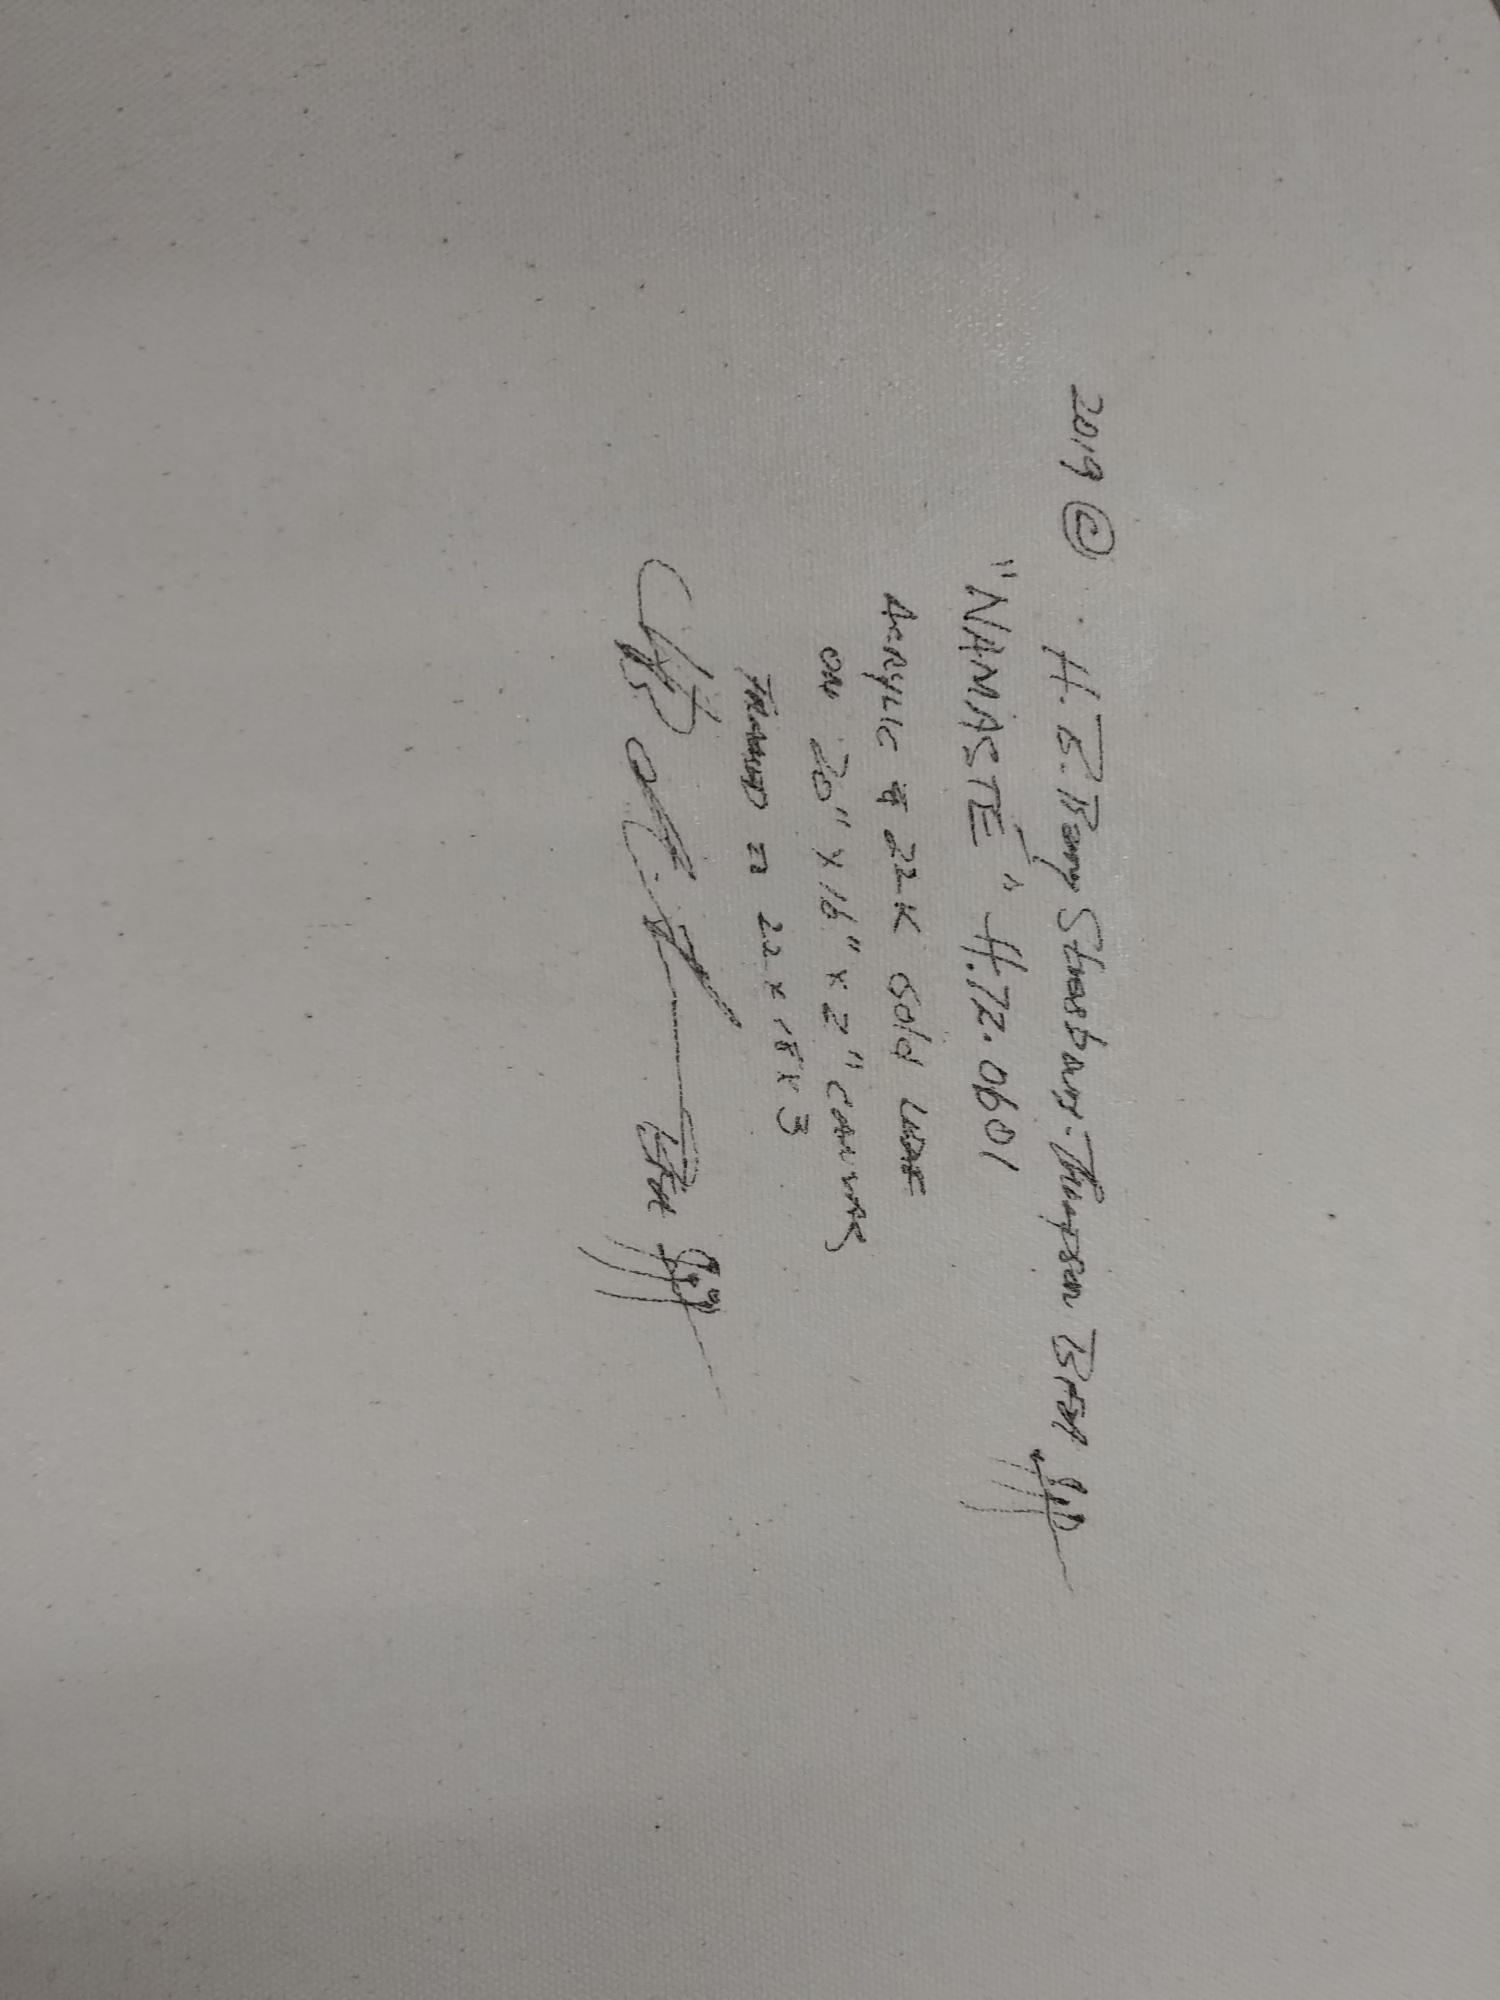 2019 © H. B. Barry Strasbourg-Thompson BFA
"NAMASTÉ" H.72.0601
ACRYLIC & 22-K Gold LEAF
ON 20" x 16" x 2" CANVAS
FRAMED = 22 x 18 x 3
BFA